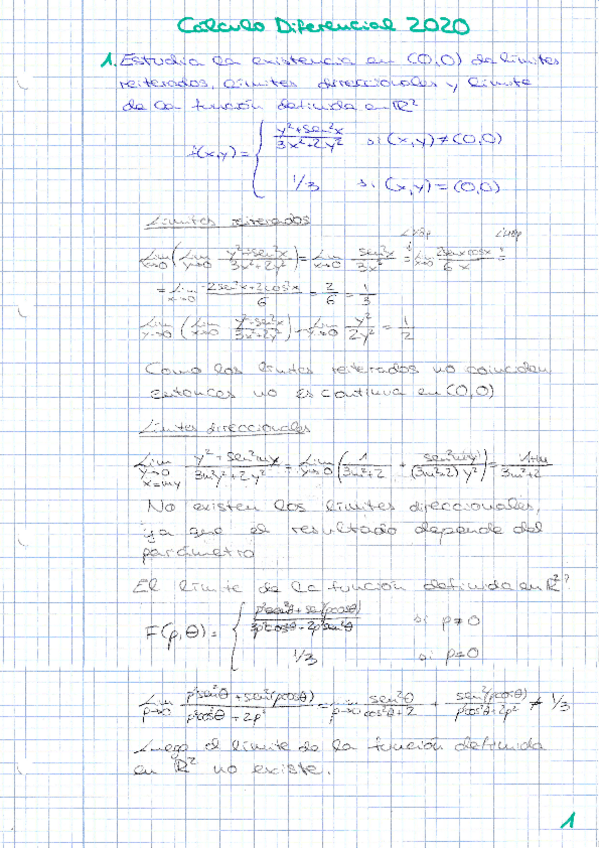 Calculo Diferencial 2020
1. Estudia la existencia en (0,0) de límites
reiterados, límites direccionales y límite
de la función definida en ℝ²
f(x,y) = { (y²+sen²x)/(3x²+2y²) si (x,y)≠(0,0)
1/3 si (x,y)=(0,0)
Límites reiterados
L'Hôp L'Hôp
lim x→0 (lim y→0 (y²+sen²x)/(3x²+2y²)) = lim x→0 sen²x/3x² = lim x→0 2senxcosx/6x =
= lim x→0 (-2sen²x+2cos²x)/6 = 2/6 = 1/3
lim y→0 (lim x→0 (y²+sen²x)/(3x²+2y²)) = lim y→0 y²/2y² = 1/2
Como los límites reiterados no coinciden
entonces no es continua en (0,0)
Límites direccionales
lim y→0 x=my (y²+sen²my)/(3m²y²+2y²) = lim y→0 (1/(3m²+2) + sen²(my)/((3m²+2)y²)) = /(3m²+2)
No existen los límites direccionales,
ya que el resultado depende del
parámetro
El límite de la función definida en ℝ²?
F(ρ,θ) = { si ρ≠0
1/3 si ρ=0
lim ρ→0 (ρ²sen²θ+sen²(ρcosθ))/(ρ²cos²θ+2ρ²) = lim ρ→0 sen²θ/(cos²θ+2) + sen²(ρcosθ)/(ρ²cos²θ+2ρ²) ≠ 1/3
Luego el límite de la función definida
en ℝ² no existe.
1